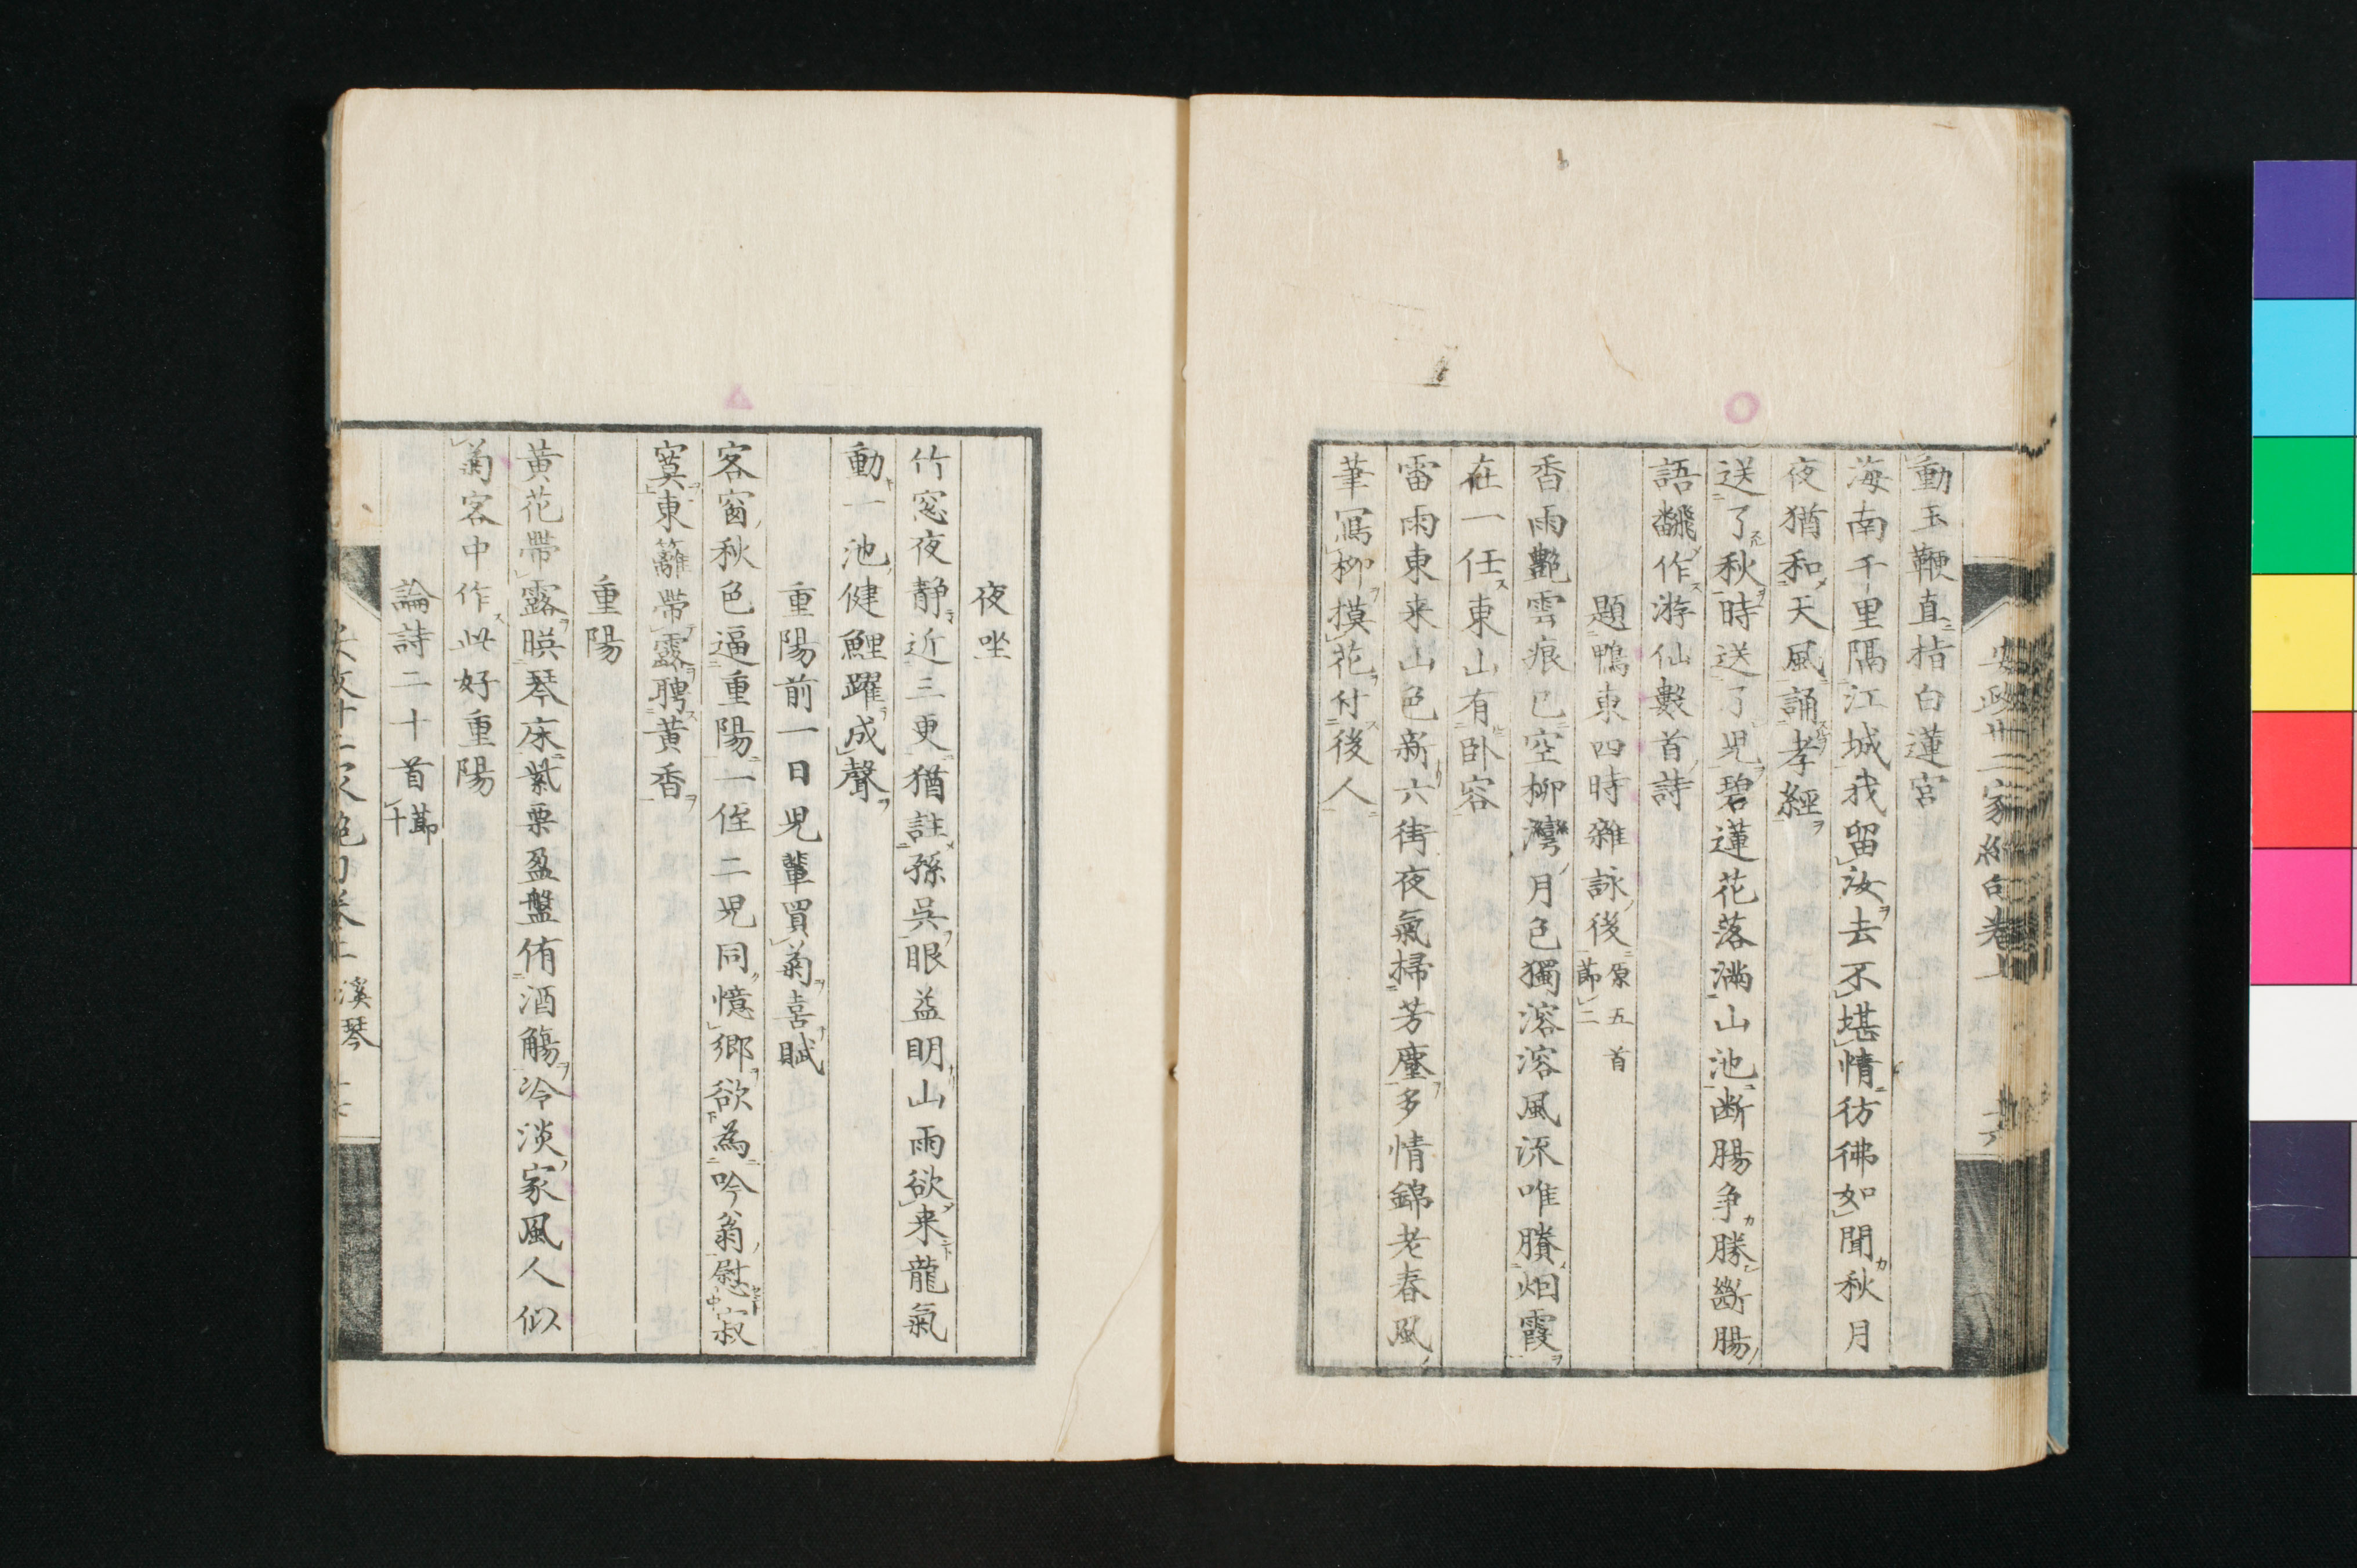 動玉鞭直指白蓮宮
海南千里隔江城我留汝去不堪情彷彿如聞秋月
夜猶和天風誦孝經
送了秋時送了児碧蓮花落満山池断腸争勝斷腸
語飜作游仙數首詩
題鴨東四時雜詠後原五首節二
香雨艶雲痕已空柳灣月色獨溶溶風流唯賸烟霞
在一任東山有卧容
雷雨東来山色新六街夜氣掃芳塵多情錦老春風
筆寫柳摸花付後人
夜坐
竹窓夜静近三更猶註孫呉眼益明山雨欲来龍氣
動一池健鯉躍成聲
重陽前一日児輩買菊喜賦
客窗秋色逼重陽一侄二児同憶郷欲為吟翁慰寂
寞東籬帶露聘黄香
重陽
黄花帶露暎琴床紫栗盈盤侑酒觴冷淡家風人似
菊客中作此好重陽
論詩二十首節十
溪琴